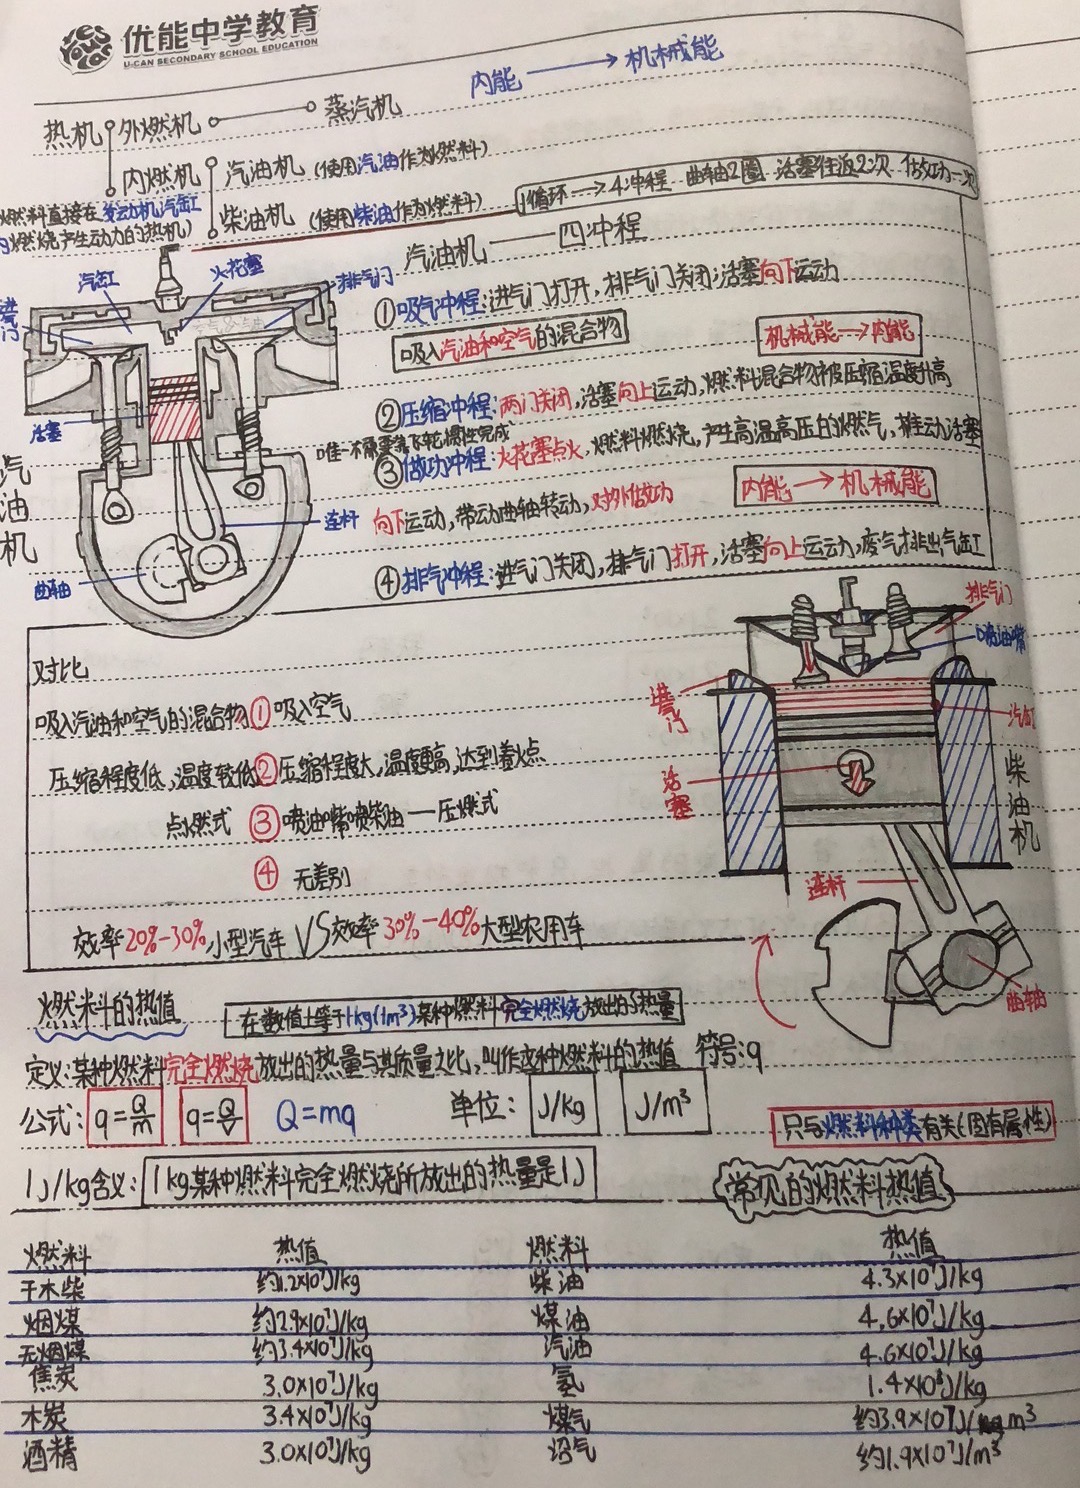 优能中学教育
U-CAN SECONDARY SCHOOL EDUCATION
内能 → 机械能
热机 外燃机 蒸汽机
内燃机 汽油机 (使用汽油作为燃料)
燃料直接在发动机汽缸
内燃烧产生动力的热机)
柴油机 (使用柴油作为燃料)
1循环 → 4冲程 曲轴2圈 活塞往返2次 做功一次
汽油机 四冲程
汽缸 火花塞 排气门
进气门
活塞
连杆
曲轴
汽油机
①吸气冲程:进气门打开,排气门关闭;活塞向下运动
吸入汽油和空气的混合物
机械能→内能
②压缩冲程:两门关闭,活塞向上运动,燃料混合物被压缩温度升高
唯一不需要靠飞轮惯性完成
③做功冲程:火花塞点火,燃料燃烧,产生高温高压的燃气,推动活塞
向下运动,带动曲轴转动,对外做功
内能→机械能
④排气冲程:进气门关闭,排气门打开,活塞向上运动,废气排出汽缸
对比
吸入汽油和空气的混合物 ① 吸入空气
压缩程度低,温度较低 ② 压缩程度大,温度更高,达到着火点
点燃式 ③ 喷油嘴喷柴油—压燃式
④ 无差别
效率20%-30% 小型汽车 VS 效率30%-40% 大型农用车
排气门
喷油嘴
进气门
汽缸
活塞
柴油机
连杆
曲轴
燃料的热值
在数值上等于1kg(1m³)某种燃料完全燃烧放出的热量
定义:某种燃料完全燃烧放出的热量与其质量之比,叫作这种燃料的热值 符号:q
公式: q=Q/m q=Q/V Q=mq 单位: J/kg J/m³
只与燃料种类有关(固有属性)
1J/kg含义: 1kg某种燃料完全燃烧所放出的热量是1J
常见的燃料热值
燃料 热值 燃料 热值
干木柴 约1.2×10⁷J/kg 柴油 4.3×10⁷J/kg
烟煤 约2.9×10⁷J/kg 煤油 4.6×10⁷J/kg
无烟煤 约3.4×10⁷J/kg 汽油 4.6×10⁷J/kg
焦炭 3.0×10⁷J/kg 氢 1.4×10⁸J/kg
木炭 3.4×10⁷J/kg 煤气 约3.9×10⁷J/m³
酒精 3.0×10⁷J/kg 沼气 约1.9×10⁷J/m³